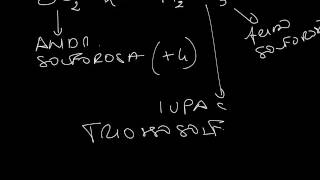 ANIDR
SOLFOROSA (+4)
ACIDO
SOLFOROS
IUPAC
TRIOSSOSOLF